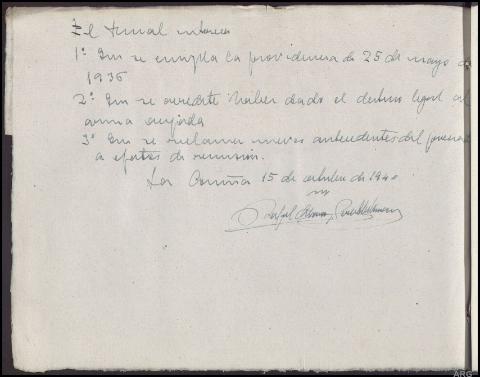 El
1º Que se cumpla la providencia de 25 de mayo de
1936
2º Que se acredite haber dado el destino legal al
arma
3º Que se reclamen nuevos antecedentes del procesado
a efectos de remisión.
La Coruña 15 de octubre de 1940
Rafael
ARG